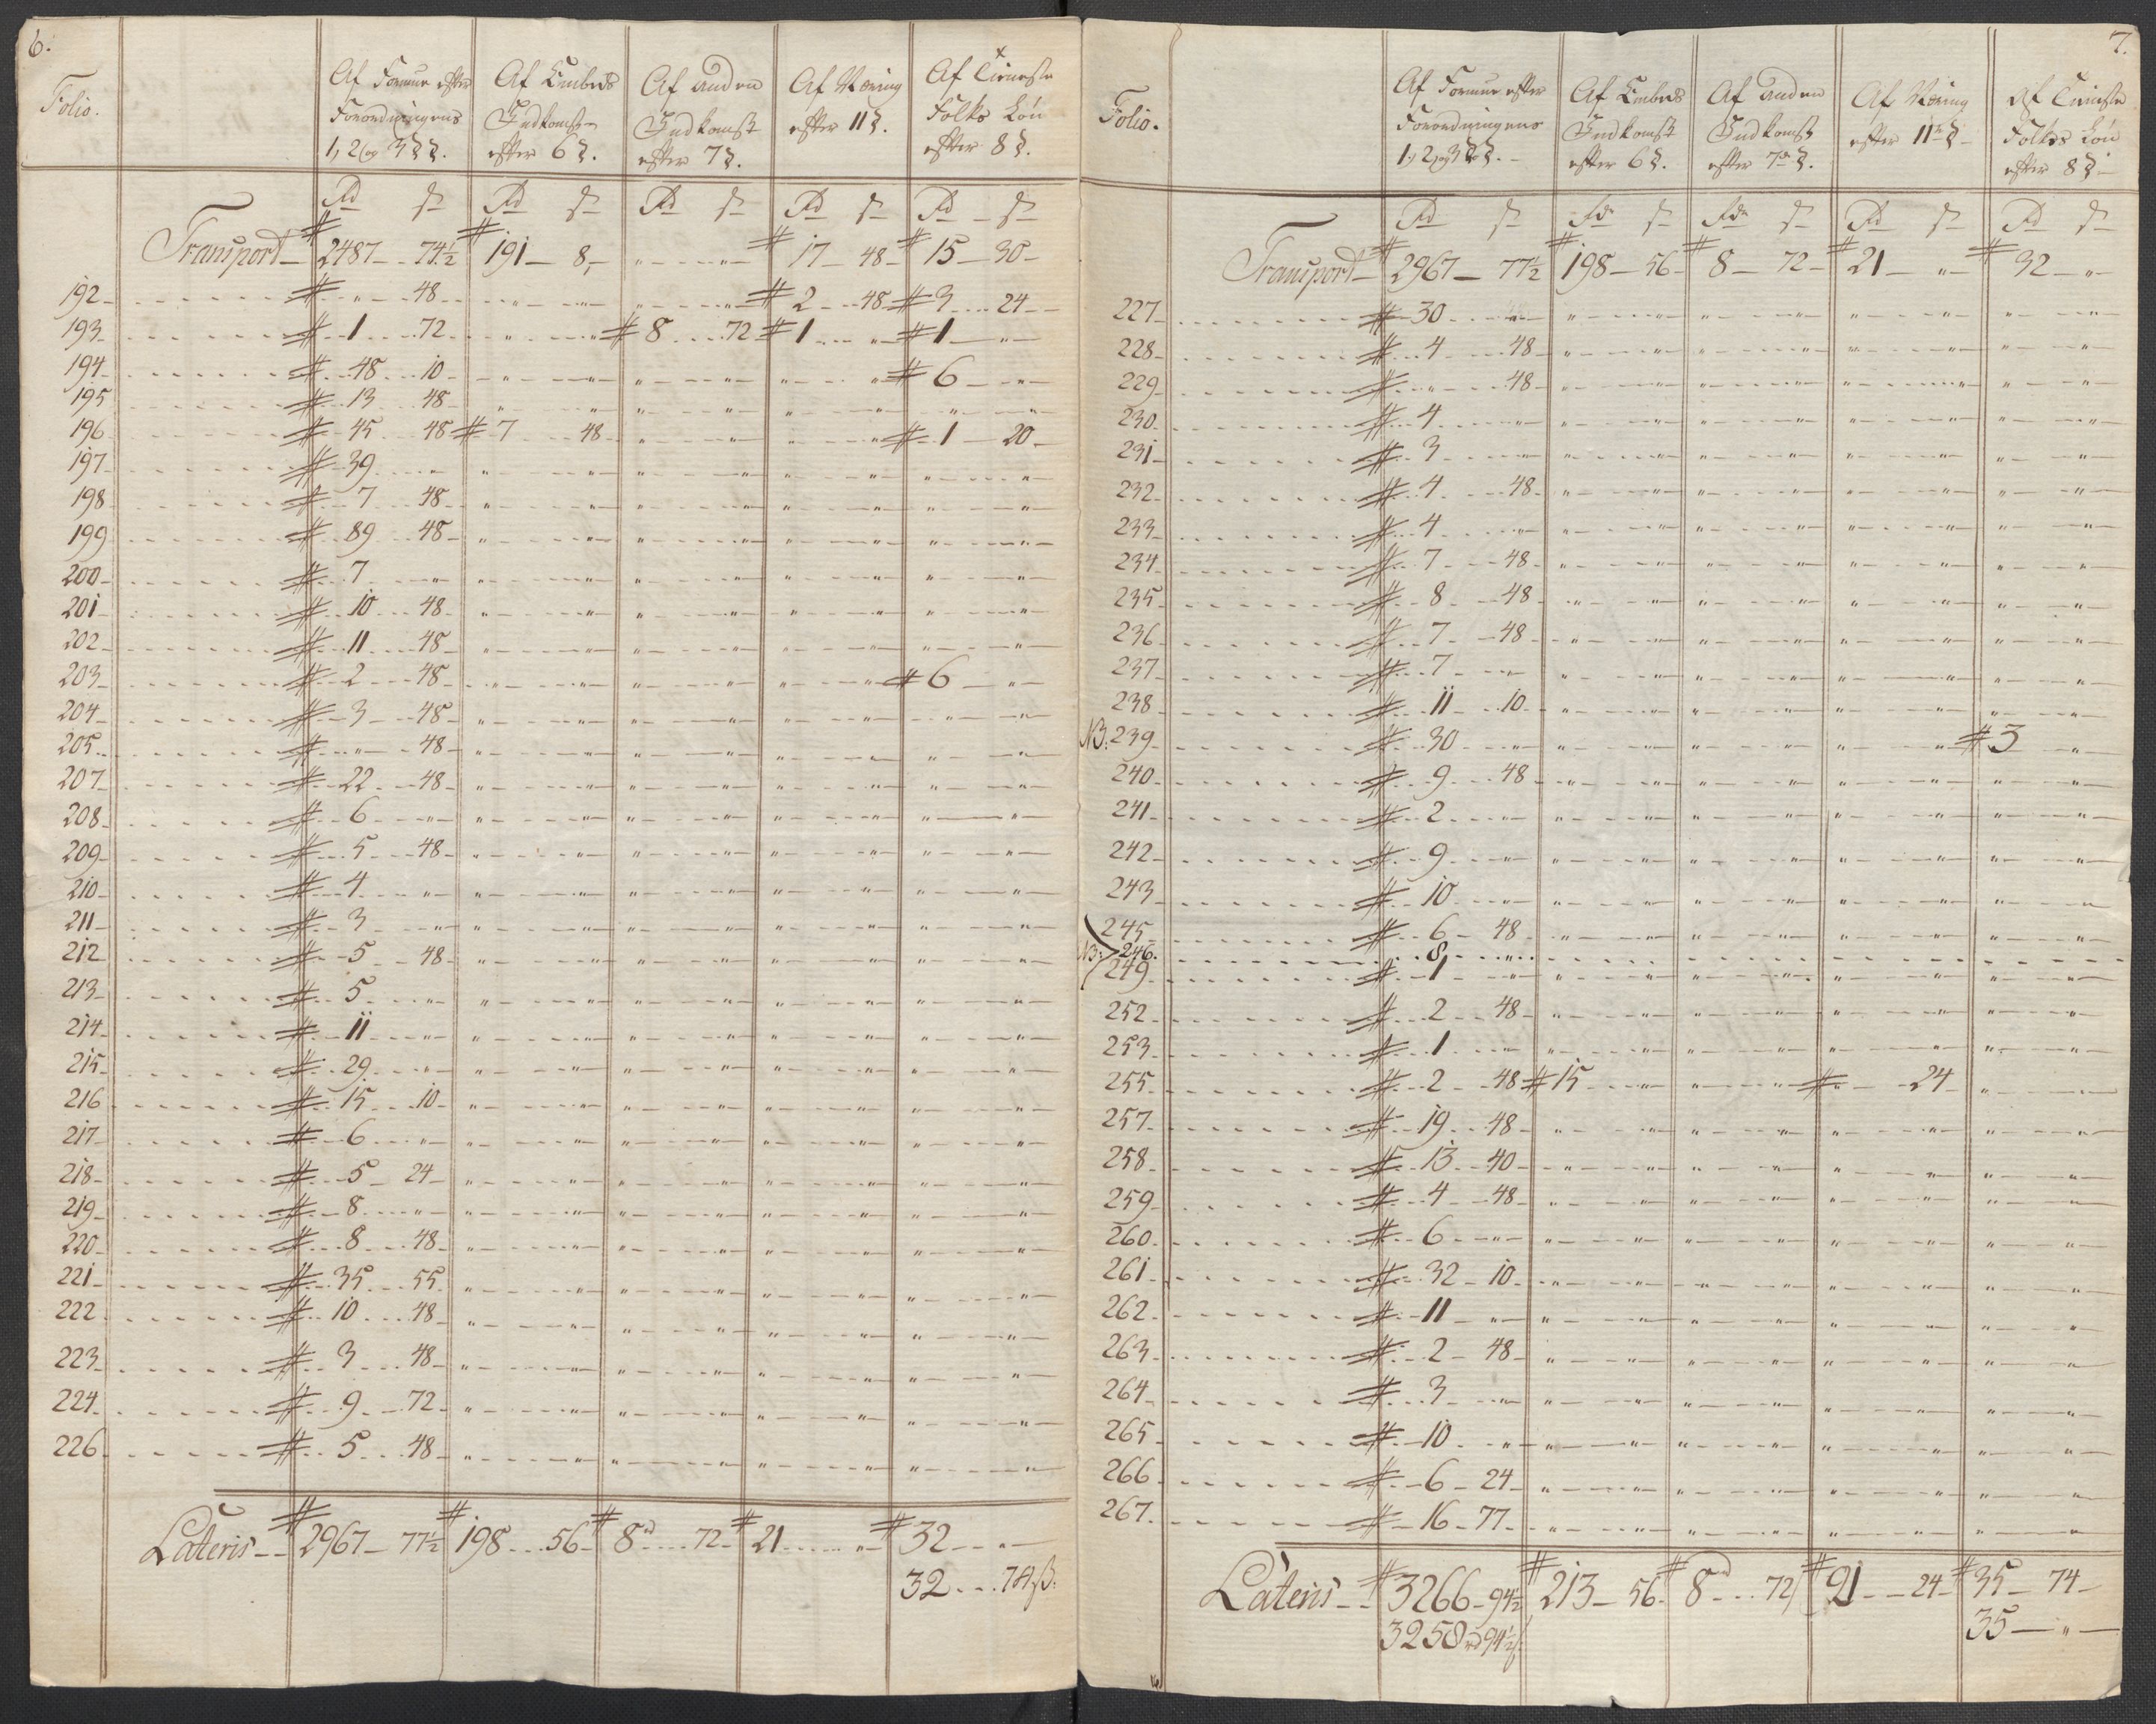 6.
Folio. Af Formue efter Forordningens 1, 2 og 3 §§. Af Embeds Indkomst efter 6 §. Af anden Indkomst efter 7 §. Af Næring efter 11 §. Af Tieneste Folks Løn efter 8 §.
Rd s Rd s Rd s Rd s Rd s
Transport 2487 74½ 191 8 " " 17 48 15 30
192 " 48 " " " " 2 48 3 24
193 1 72 " " 8 72 1 " 1 "
194 48 10 " " " " " " 6 "
195 13 48 " " " " " " " "
196 45 48 7 48 " " " " 1 20
197 39 " " " " " " " " "
198 7 48 " " " " " " " "
199 89 48 " " " " " " " "
200 7 " " " " " " " " "
201 10 48 " " " " " " " "
202 11 48 " " " " " " " "
203 2 48 " " " " " " 6 "
204 3 48 " " " " " " " "
205 " 48 " " " " " " " "
207 22 48 " " " " " " " "
208 6 " " " " " " " " "
209 5 48 " " " " " " " "
210 4 " " " " " " " " "
211 3 " " " " " " " " "
212 5 48 " " " " " " " "
213 5 " " " " " " " " "
214 11 " " " " " " " " "
215 29 " " " " " " " " "
216 15 10 " " " " " " " "
217 6 " " " " " " " " "
218 5 24 " " " " " " " "
219 8 " " " " " " " " "
220 8 48 " " " " " " " "
221 35 55 " " " " " " " "
222 10 48 " " " " " " " "
223 3 48 " " " " " " " "
224 9 72 " " " " " " " "
226 5 48 " " " " " " " "
Lateris 2967 77½ 198 56 8 72 21 " 32 "
32 74 ß.
7.
Folio. Af Formue efter Forordningens 1, 2 og 3 §§. Af Embeds Indkomst efter 6 §. Af anden Indkomst efter 7de §. Af Næring efter 11te § Af Tieneste Folks Løn efter 8 §
Rd s Rdr s Rdr s Rd s Rd s
Transport 2967 77½ 198 56 8 72 21 " 32 "
227 30 " " " " " " " " "
228 4 48 " " " " " " " "
229 " 48 " " " " " " " "
230 4 " " " " " " " " "
231 3 " " " " " " " " "
232 4 48 " " " " " " " "
233 4 " " " " " " " " "
234 7 48 " " " " " " " "
235 8 48 " " " " " " " "
236 7 48 " " " " " " " "
237 7 " " " " " " " " "
238 11 10 " " " " " " " "
NB. 239 30 " " " " " " " 3 "
240 9 48 " " " " " " " "
241 2 " " " " " " " " "
242 9 " " " " " " " " "
243 10 " " " " " " " " "
245 6 48 " " " " " " " "
NB. 246. 8 "
249 1 " " " " " " " " "
252 2 48 " " " " " " " "
253 1 " " " " " " " " "
255 2 48 15 " " " " 24 " "
257 19 48 " " " " " " " "
258 13 40 " " " " " " " "
259 4 48 " " " " " " " "
260 6 " " " " " " " " "
261 32 10 " " " " " " " "
262 11 " " " " " " " " "
263 2 48 " " " " " " " "
264 3 " " " " " " " " "
265 10 " " " " " " " " "
266 6 24 " " " " " " " "
267 16 77 " " " " " " " "
Lateris 3266 94½ 213 56 8 72 21 24 35 74
3258 rd 94½ s 35 "